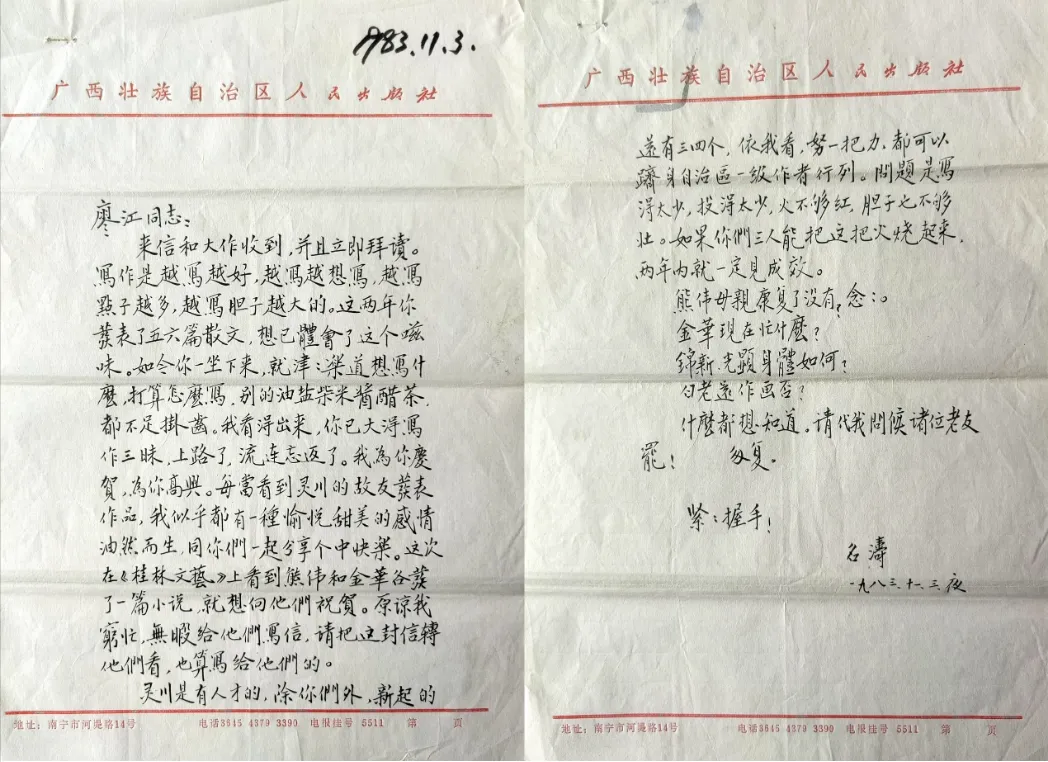 1983.11.3.
广西壮族自治区人民出版社
廖江同志：
来信和大作收到，并且立即拜读。
寫作是越寫越好，越寫越想寫，越寫
點子越多，越寫胆子越大的。这两年你
發表了五六篇散文，想已體會了这个滋
味。如今你一坐下来，就津:樂道想寫什
麽，打算怎麽寫，别的油盐柴米醬醋茶，
都不足掛齒。我看得出来，你已大得寫
作三昧，上路了，流连忘返了。我為你慶
賀，為你高興。每當看到灵川的故友發表
作品，我似乎都有一種愉悦甜美的感情
油然而生，同你們一起分享个中快樂。这次
在《桂林文藝》上看到熊伟和金華各發
了一篇小说，就想向他們祝賀。原谅我
窮忙，無暇给他們寫信，请把这封信轉
他們看，也算寫给他們的。
灵川是有人才的，除你們外，新起的
地址：南宁市河堤路14号 电话3845 4379 3390 电报挂号 5511 第 页
广西壮族自治区人民出版社
还有三四个，依我看，努一把力，都可以
躋身自治區一级作者行列。問題是寫
得太少，投得太少，火不够红，胆子也不够
壮。如果你們三人能把这把火烧起来，
两年内就一定見成效。
熊伟母親康复了没有？念:。
金華现在忙什麽？
錦新、光顯身體如何？
白老还作画否？
什麽都想知道。请代我問候诸位老友
罷！ 匆复。
紧:握手！
名濤
一九八三、十一、三夜
地址：南宁市河堤路14号 电话3845 4379 3390 电报挂号 5511 第 页